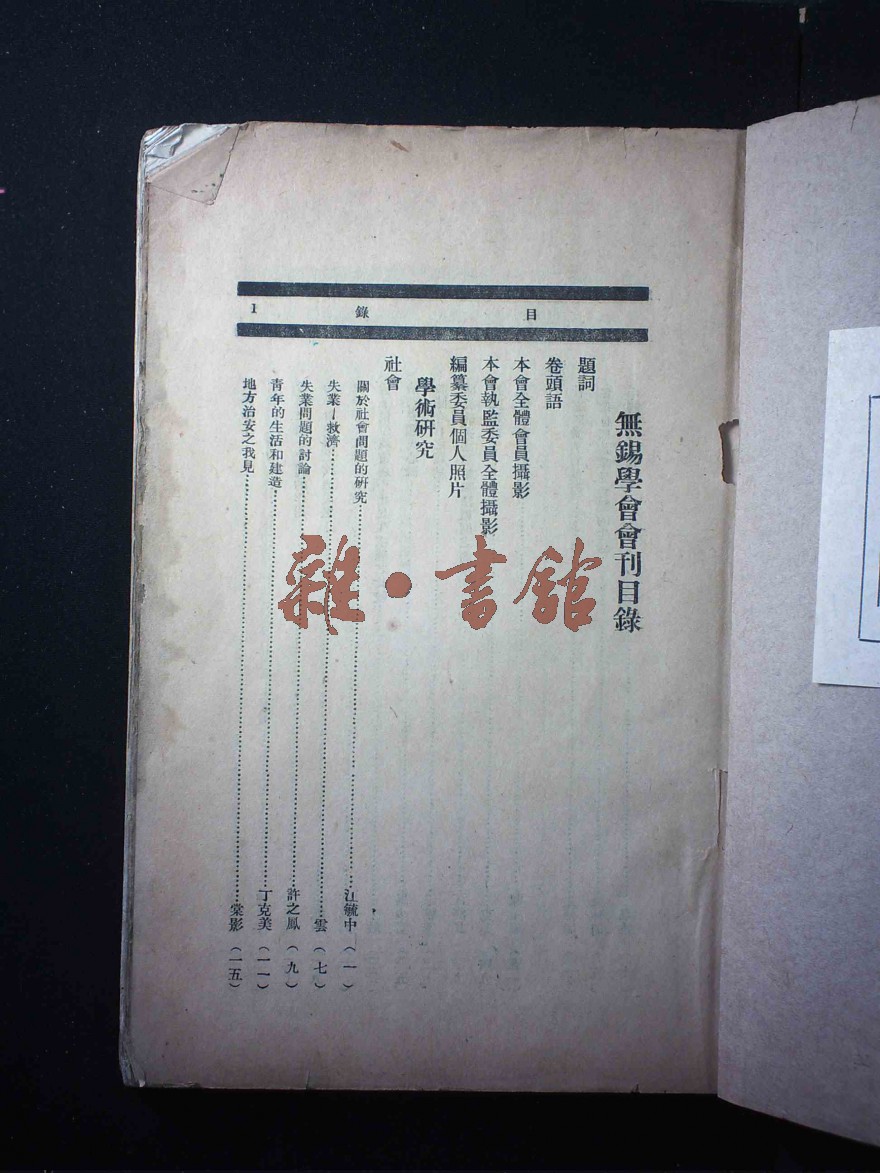 目 錄 1
無錫學會會刊目錄
題詞
卷頭語
本會全體會員攝影
本會執監委員全體攝影
編纂委員個人照片
學術研究
社會
關於社會問題的研究……江毓中(一)
失業—救濟……雲(七)
失業問題的討論……許之鳳(九)
青年的生活和建造……丁克美(一一)
地方治安之我見……棠影(一五)
雜·書舘